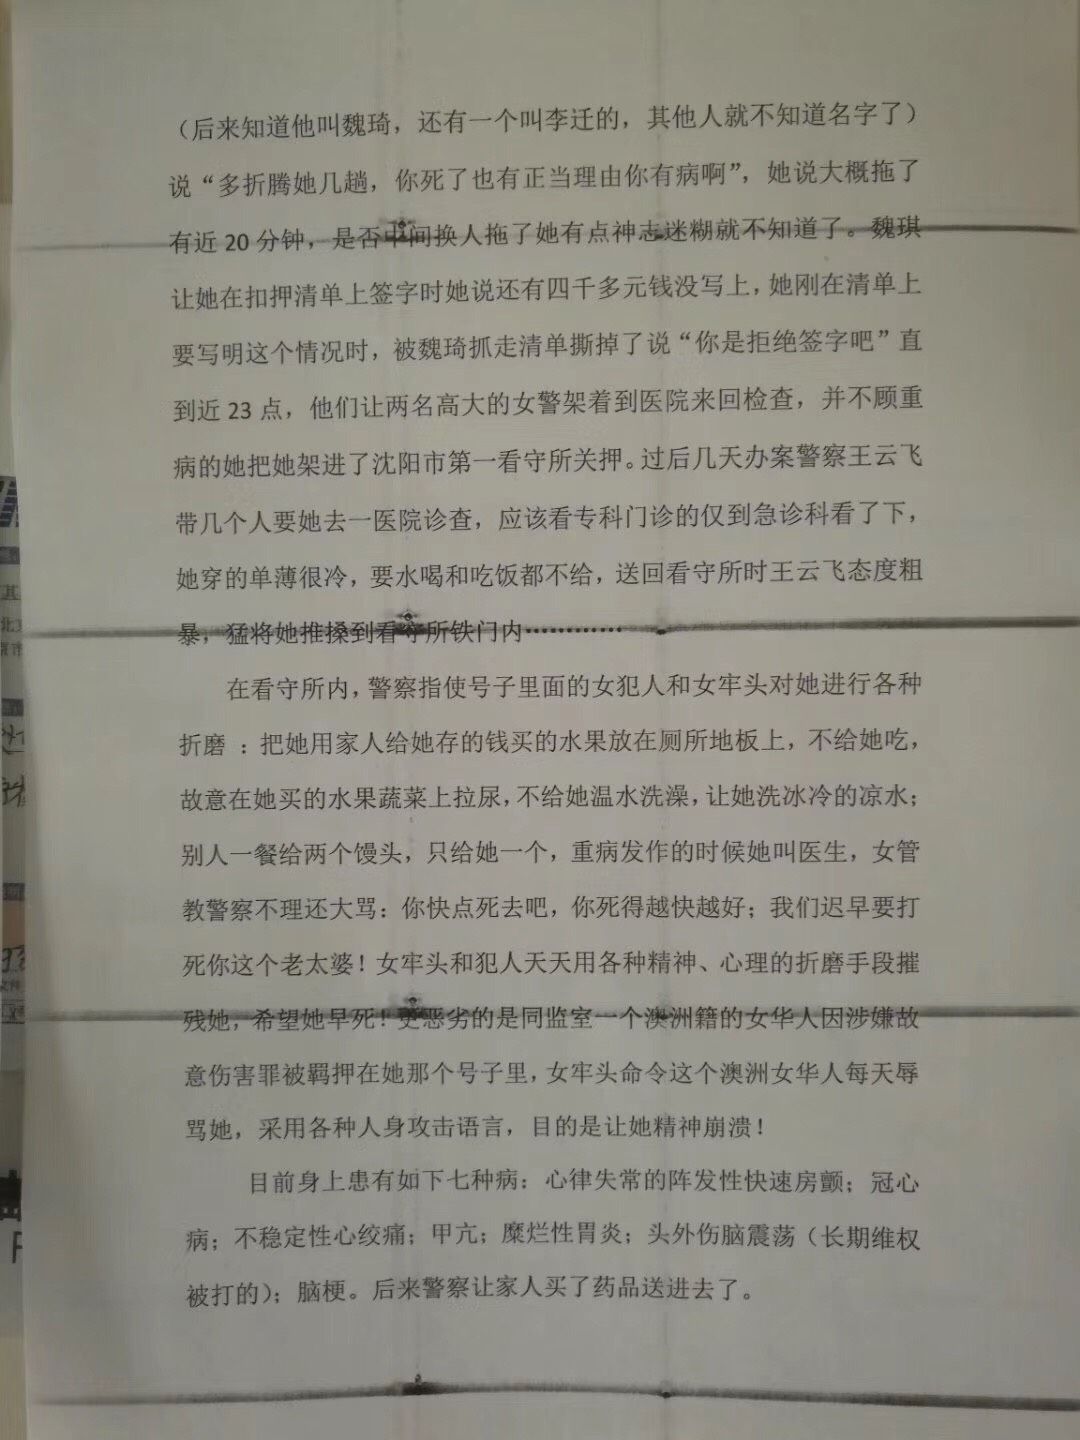 （后来知道他叫魏琦，还有一个叫李迁的，其他人就不知道名字了）
说“多折腾她几趟，你死了也有正当理由你有病啊”，她说大概拖了
有近 20 分钟，是否中间换人拖了她有点神志迷糊就不知道了。魏琪
让她在扣押清单上签字时她说还有四千多元钱没写上，她刚在清单上
要写明这个情况时，被魏琦抓走清单撕掉了说“你是拒绝签字吧”直
到近 23 点，他们让两名高大的女警架着到医院来回检查，并不顾重
病的她把她架进了沈阳市第一看守所关押。过后几天办案警察王云飞
带几个人要她去一医院诊查，应该看专科门诊的仅到急诊科看了下，
她穿的单薄很冷，要水喝和吃饭都不给，送回看守所时王云飞态度粗
暴，猛将她推搡到看守所铁门内…………
在看守所内，警察指使号子里面的女犯人和女牢头对她进行各种
折磨 ：把她用家人给她存的钱买的水果放在厕所地板上，不给她吃，
故意在她买的水果蔬菜上拉尿，不给她温水洗澡，让她洗冰冷的凉水；
别人一餐给两个馒头，只给她一个，重病发作的时候她叫医生，女管
教警察不理还大骂：你快点死去吧，你死得越快越好；我们迟早要打
死你这个老太婆！女牢头和犯人天天用各种精神、心理的折磨手段摧
残她，希望她早死！更恶劣的是同监室一个澳洲籍的女华人因涉嫌故
意伤害罪被羁押在她那个号子里，女牢头命令这个澳洲女华人每天辱
骂她，采用各种人身攻击语言，目的是让她精神崩溃！
目前身上患有如下七种病：心律失常的阵发性快速房颤；冠心
病；不稳定性心绞痛；甲亢；糜烂性胃炎；头外伤脑震荡（长期维权
被打的）；脑梗。后来警察让家人买了药品送进去了。